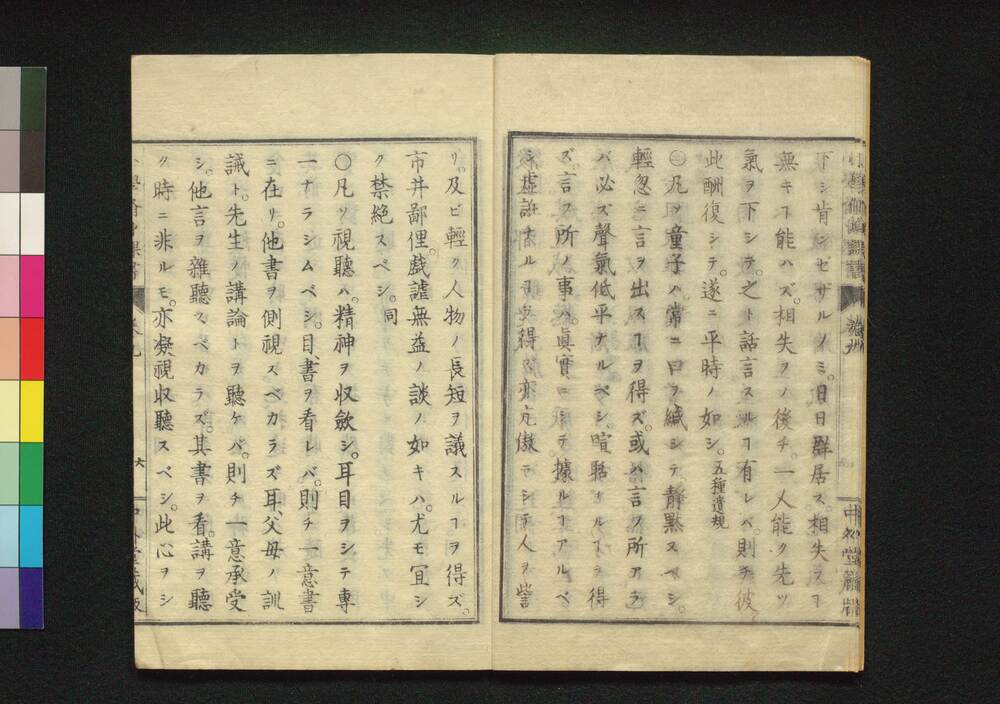 下シ肯ンゼザルノミ。日日群居ス。相失ヲヿ
無キヿ能ハズ。相失ヲノ後チ。一人能ク先ツ
氣ヲ下シテ。之ト話言スルヿ有レバ。則チ彼
此酬復シテ。遂ニ平時ノ如シ。五種遺規
〇凡ソ童子ハ常ニ口ヲ緘シテ靜黙スベシ。
輕忽ニ言ヲ出スヿヲ得ズ。或ハ言フ所アラ
バ必ズ聲氣低平ナルベシ。喧聒スルヿヲ得
ズ。言フ所ノ事ハ。眞實ニシテ。據ルヿアルベ
虚誑ナルヲ得亦亢傲ラシテ人ヲ訾
リ。及ビ輕ク人物ノ長短ヲ議スルヿヲ得ズ。
市井鄙俚。戯謔無益ノ談ノ如キハ。尤モ冝シ
ク禁絶スベシ。同
〇凡ソ視聽ハ。精神ヲ収斂シ。耳目ヲシテ專
一ナラシムベシ。目、書ヲ看レバ。則チ一意書
ニ在リ。他書ヲ側視スベカラズ耳、父母ノ訓
誡ト。先生ノ講論トヲ聽ケバ。則チ一意承受
シ。他言ヲ雜聽スベカラズ。其書ヲ看。講ヲ聽
ク時ニ非ルモ。亦凝視収聽スベシ。此心ヲシ
六